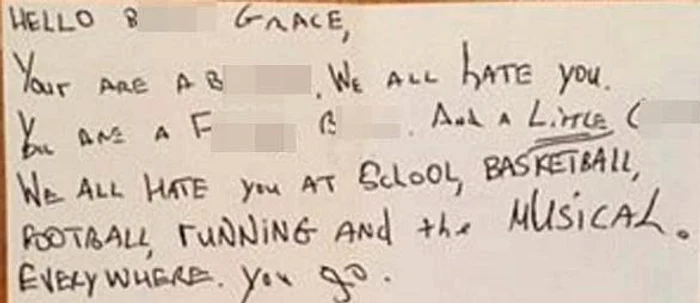 HELLO B GRACE,
Your ARE A B . WE ALL HATE you.
You ARE A F B . And A LITTLE C
WE ALL HATE you AT SCLOOL, BASKETBALL,
FOOTBALL, rUNNING AND the MUSICAL.
EVERYWHERE. you go.